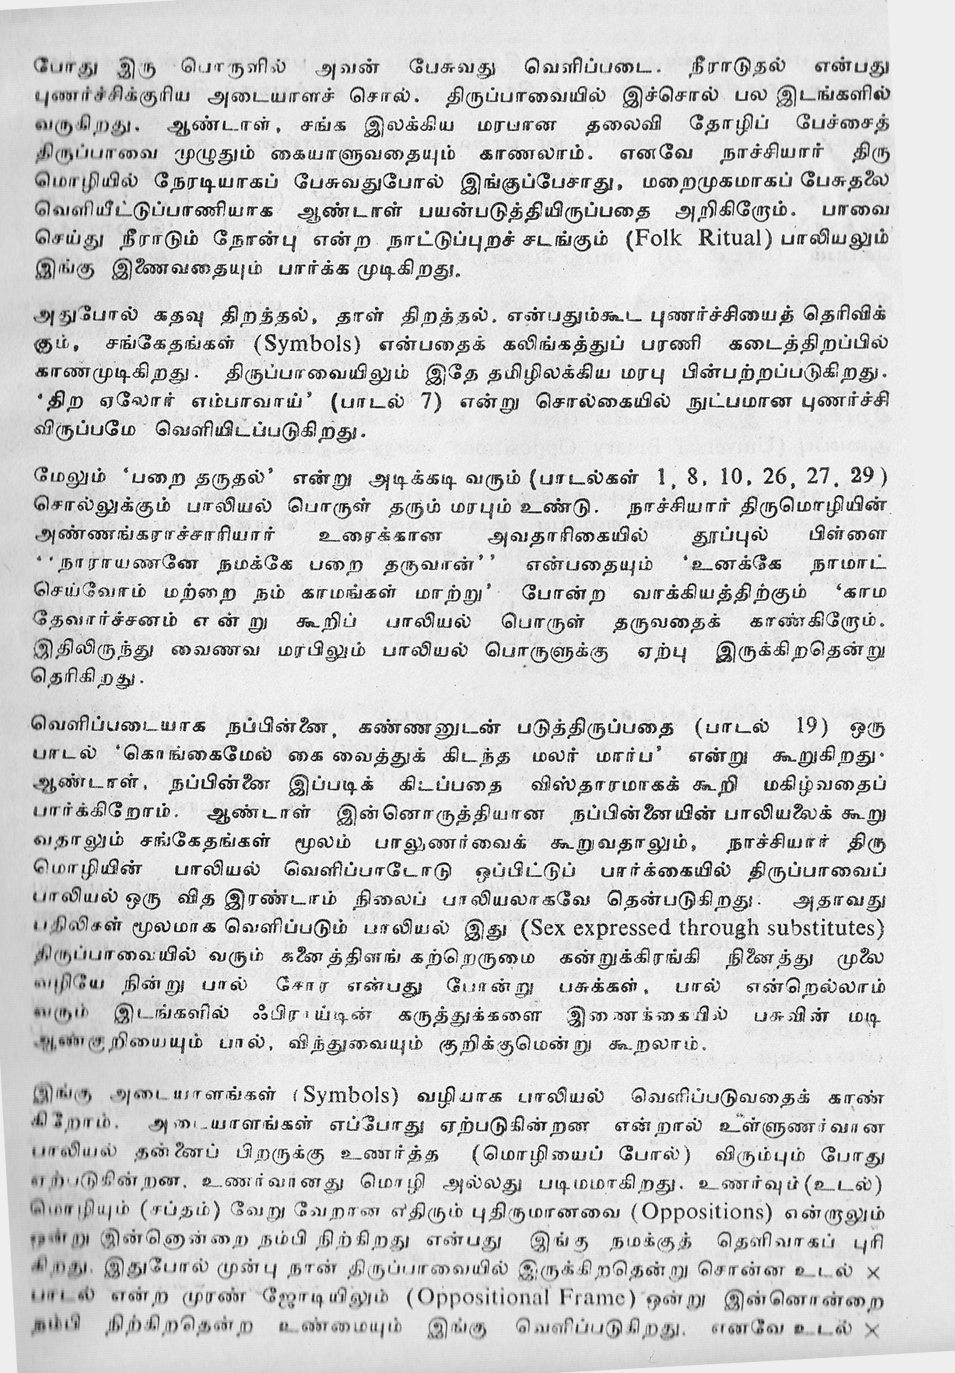 போது இரு பொருளில் அவன் பேசுவது வெளிப்படை. நீராடுதல் என்பது
புணர்ச்சிக்குரிய அடையாளச் சொல். திருப்பாவையில் இச்சொல் பல இடங்களில்
வருகிறது. ஆண்டாள், சங்க இலக்கிய மரபான தலைவி தோழிப் பேச்சைத்
திருப்பாவை முழுதும் கையாளுவதையும் காணலாம். எனவே நாச்சியார் திரு
மொழியில் நேரடியாகப் பேசுவதுபோல் இங்குப்பேசாது, மறைமுகமாகப் பேசுதலை
வெளியீட்டுப்பாணியாக ஆண்டாள் பயன்படுத்தியிருப்பதை அறிகிறோம். பாவை
செய்து நீராடும் நோன்பு என்ற நாட்டுப்புறச் சடங்கும் (Folk Ritual) பாலியலும்
இங்கு இணைவதையும் பார்க்க முடிகிறது.
அதுபோல் கதவு திறத்தல், தாள் திறத்தல். என்பதும்கூட புணர்ச்சியைத் தெரிவிக்
கும், சங்கேதங்கள் (Symbols) என்பதைக் கலிங்கத்துப் பரணி கடைத்திறப்பில்
காணமுடிகிறது. திருப்பாவையிலும் இதே தமிழிலக்கிய மரபு பின்பற்றப்படுகிறது.
‘திற ஏலோர் எம்பாவாய்’ (பாடல் 7) என்று சொல்கையில் நுட்பமான புணர்ச்சி
விருப்பமே வெளியிடப்படுகிறது.
மேலும் ‘பறை தருதல்’ என்று அடிக்கடி வரும் (பாடல்கள் 1, 8, 10, 26, 27, 29)
சொல்லுக்கும் பாலியல் பொருள் தரும் மரபும் உண்டு. நாச்சியார் திருமொழியின்
அண்ணங்கராச்சாரியார் உரைக்கான அவதாரிகையில் தூப்புல் பிள்ளை
‘‘நாராயணனே நமக்கே பறை தருவான்’’ என்பதையும் ‘உனக்கே நாமாட்
செய்வோம் மற்றை நம் காமங்கள் மாற்று’ போன்ற வாக்கியத்திற்கும் ‘காம
தேவார்ச்சனம் என்று கூறிப் பாலியல் பொருள் தருவதைக் காண்கிறோம்.
இதிலிருந்து வைணவ மரபிலும் பாலியல் பொருளுக்கு ஏற்பு இருக்கிறதென்று
தெரிகிறது.
வெளிப்படையாக நப்பின்னை, கண்ணனுடன் படுத்திருப்பதை (பாடல் 19) ஒரு
பாடல் ‘கொங்கைமேல் கை வைத்துக் கிடந்த மலர் மார்ப’ என்று கூறுகிறது.
ஆண்டாள், நப்பின்னை இப்படிக் கிடப்பதை விஸ்தாரமாகக் கூறி மகிழ்வதைப்
பார்க்கிறோம். ஆண்டாள் இன்னொருத்தியான நப்பின்னையின் பாலியலைக் கூறு
வதாலும் சங்கேதங்கள் மூலம் பாலுணர்வைக் கூறுவதாலும், நாச்சியார் திரு
மொழியின் பாலியல் வெளிப்பாடோடு ஒப்பிட்டுப் பார்க்கையில் திருப்பாவைப்
பாலியல் ஒரு வித இரண்டாம் நிலைப் பாலியலாகவே தென்படுகிறது. அதாவது
பதிலிகள் மூலமாக வெளிப்படும் பாலியல் இது (Sex expressed through substitutes)
திருப்பாவையில் வரும் கனைத்திளங் கற்றெருமை கன்றுக்கிரங்கி நினைத்து முலை
வழியே நின்று பால் சோர என்பது போன்று பசுக்கள், பால் என்றெல்லாம்
வரும் இடங்களில் ஃபிராய்டின் கருத்துக்களை இணைக்கையில் பசுவின் மடி
ஆண்குறியையும் பால், விந்துவையும் குறிக்குமென்று கூறலாம்.
இங்கு அடையாளங்கள் (Symbols) வழியாக பாலியல் வெளிப்படுவதைக் காண்
கிறோம். அடையாளங்கள் எப்போது ஏற்படுகின்றன என்றால் உள்ளுணர்வான
பாலியல் தன்னைப் பிறருக்கு உணர்த்த (மொழியைப் போல்) விரும்பும் போது
ஏற்படுகின்றன. உணர்வானது மொழி அல்லது படிமமாகிறது. உணர்வும் (உடல்)
மொழியும் (சப்தம்) வேறு வேறான எதிரும் புதிருமானவை (Oppositions) என்றாலும்
ஒன்று இன்னொன்றை நம்பி நிற்கிறது என்பது இங்கு நமக்குத் தெளிவாகப் புரி
கிறது. இதுபோல் முன்பு நான் திருப்பாவையில் இருக்கிறதென்று சொன்ன உடல் ×
பாடல் என்ற முரண் ஜோடியிலும் (Oppositional Frame) ஒன்று இன்னொன்றை
நம்பி நிற்கிறதென்ற உண்மையும் இங்கு வெளிப்படுகிறது. எனவே உடல் ×